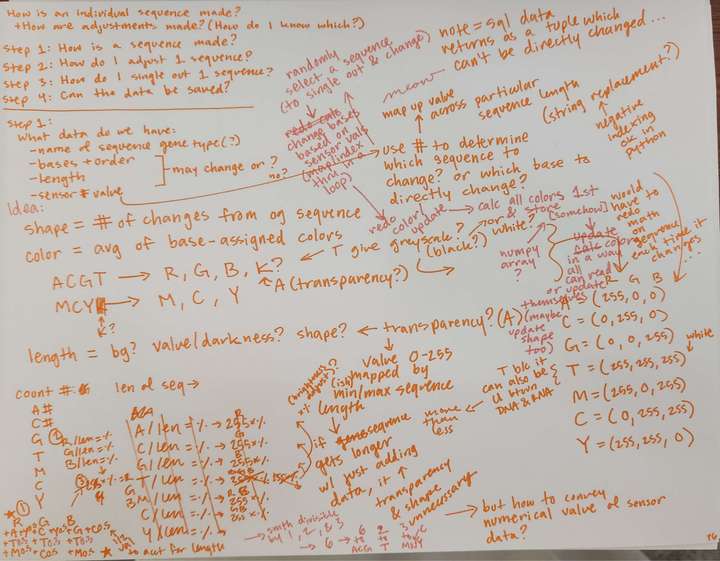 How is an individual sequence made?
+How are adjustments made? (How do I know which?)
Step 1: How is a sequence made?
Step 2: How do I adjust 1 sequence?
Step 3: How do I single out 1 sequence?
Step 4: Can the data be saved?
randomly
select a sequence
(to single out & change)
change based
based on
sensor vals
(map/index
thru in a
loop)
note = sql data
returns as a tuple which
can't be directly changed ...
meow
map up value
across particular
sequence length
(string replacement?)
negative
indexing
ok in
python
Step 1:
What data do we have:
-name of sequence gene type(?)
-bases + order
-length
may change or ?
no?
-sensor # value
use # to determine
which sequence to
change? or which base to
directly change?
Idea:
shape = # of changes from og sequence
color = avg of base-assigned colors
redo
color
update
calc all colors 1st
& store
[somehow]
numpy
array
?
update
calc color
in a way
all
can read
or update
themselves
(maybe
update
shape
too)
would
have to
redo
math
on
sequence
each time it
changes ...
ACGT → R, G, B, K?
T give greyscale? or white?
(black?)
A (transparency?)
MCY → M, C, Y
K?
length = bg? value/darkness? shape? ← transparency? (A)
value 0-255
(ish) mapped by
min/max sequence
length
(brightness
adjust?)
R G B
A = (255, 0, 0)
C = (0, 255, 0)
G = (0, 0, 255)
T = (255, 255, 255)
white
M = (255, 0, 255)
C = (0, 255, 255)
Y = (255, 255, 0)
T bkc it
can also be
U btwn
DNA & RNA
more
than
less
if sequence
gets longer
w/ just adding
data, it
transparency
& shape
unnecessary
but how to convey
numerical value of sensor
data?
count #
len of seq →
A#
C#
G
T
M
C
Y
R/len = %
G/len = %
B/len = %
A/len = % → 255 × %
C/len = % → 255 × %
G/len = % → 255 × %
T/len = % → 255 × %
M/len = % → 255 × %
C/len = % → 255 × %
Y/len = %
R G B
+A +C +G
+T +T +T
to act for length
smth divisible
by 1, 2, & 3
→ 6
6 2 3
to to to
ACG T MCY